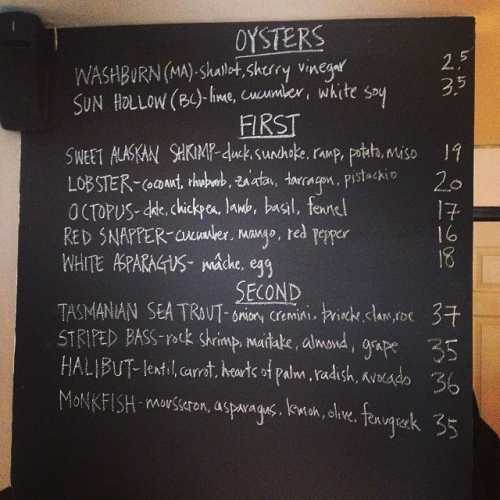 OYSTERS
WASHBURN (MA) - shallot, sherry vinegar 2.5
SUN HOLLOW (BC) - lime, cucumber, white soy 3.5
FIRST
SWEET ALASKAN SHRIMP - duck, sunchoke, ramp, potato, miso 19
LOBSTER - coconut, rhubarb, za'atar, tarragon, pistachio 20
OCTOPUS - date, chickpea, lamb, basil, fennel 17
RED SNAPPER - cucumber, mango, red pepper 16
WHITE ASPARAGUS - mâche, egg 18
SECOND
TASMANIAN SEA TROUT - onion, cremini, brioche, clam, roe 37
STRIPED BASS - rock shrimp, maitake, almond, grape 35
HALIBUT - lentil, carrot, hearts of palm, radish, avocado 36
MONKFISH - mousseron, asparagus, lemon, olive, fenugreek 35